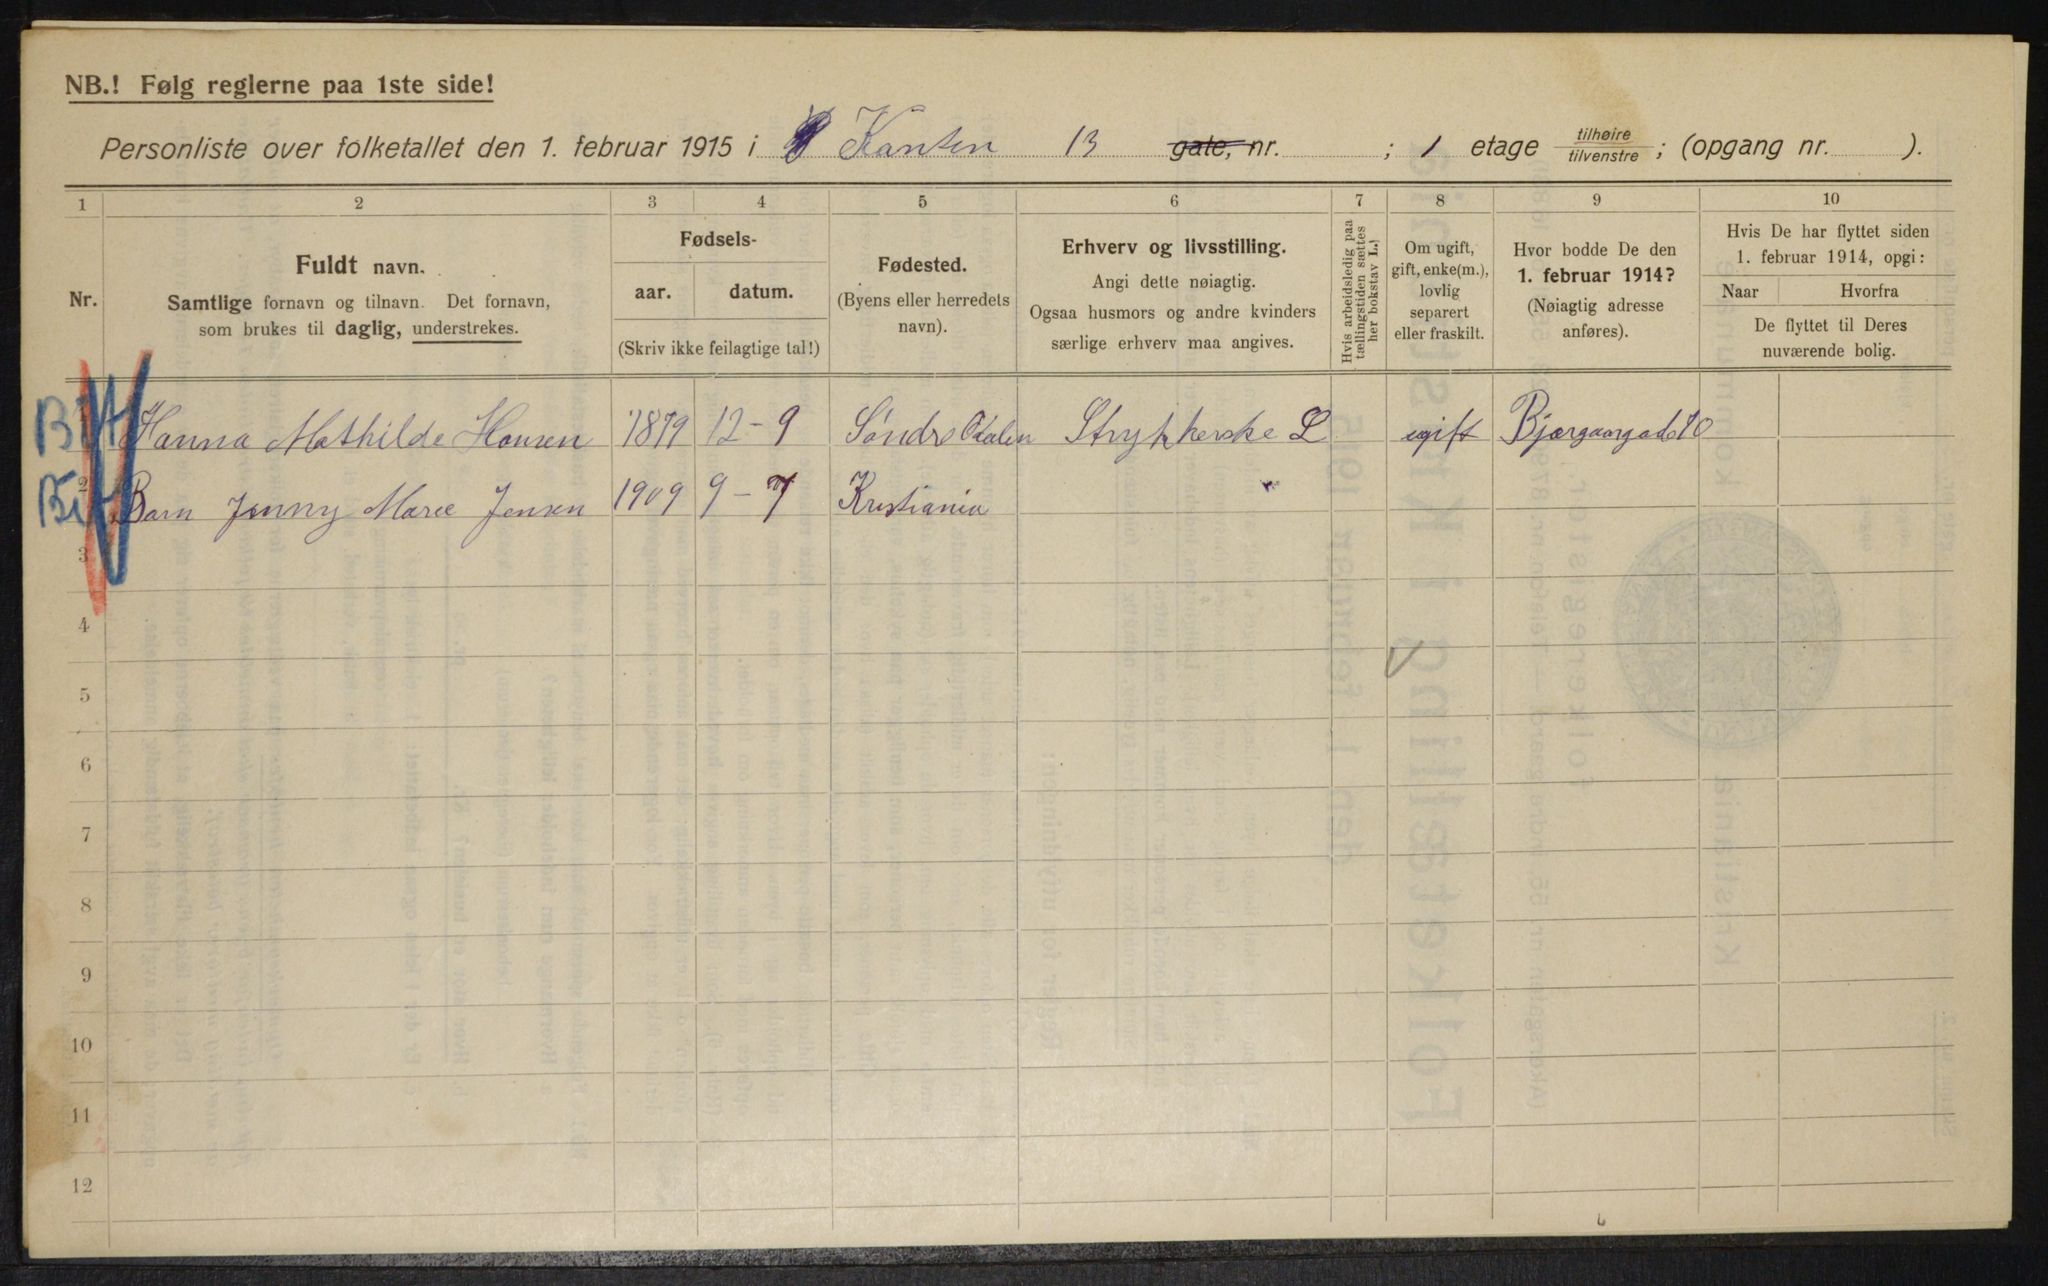 NB.! Følg reglerne paa 1ste side!
Personliste over folketallet den 1. februar 1915 i Kanten 13 gate, nr. ; 1 etage tilhøire tilvenstre ; (opgang nr. ).
1 2 3 4 5 6 7 8 9 10
Nr.
Fuldt navn.
Samtlige fornavn og tilnavn. Det fornavn,
som brukes til daglig, understrekes.
Fødsels-
aar. datum.
(Skriv ikke feilagtige tal!)
Fødested.
(Byens eller herredets
navn).
Erhverv og livsstilling.
Angi dette nøiagtig.
Ogsaa husmors og andre kvinders
særlige erhverv maa angives.
Hvis arbeidsledig paa
tællingstiden sættes
her bokstav L.)
Om ugift,
gift, enke(m.),
lovlig
separert
eller fraskilt.
Hvor bodde De den
1. februar 1914?
(Nøiagtig adresse
anføres).
Hvis De har flyttet siden
1. februar 1914, opgi:
Naar Hvorfra
De flyttet til Deres
nuværende bolig.
Hanna Mathilde Hansen 1879 12-9 Søndre Odalen Strykkerske L ugift Bjergaargade 70
2 Barn Jenny Marie Jensen 1909 9-7 Kristiania
3
4
5
6
7
8
9
10
11
12